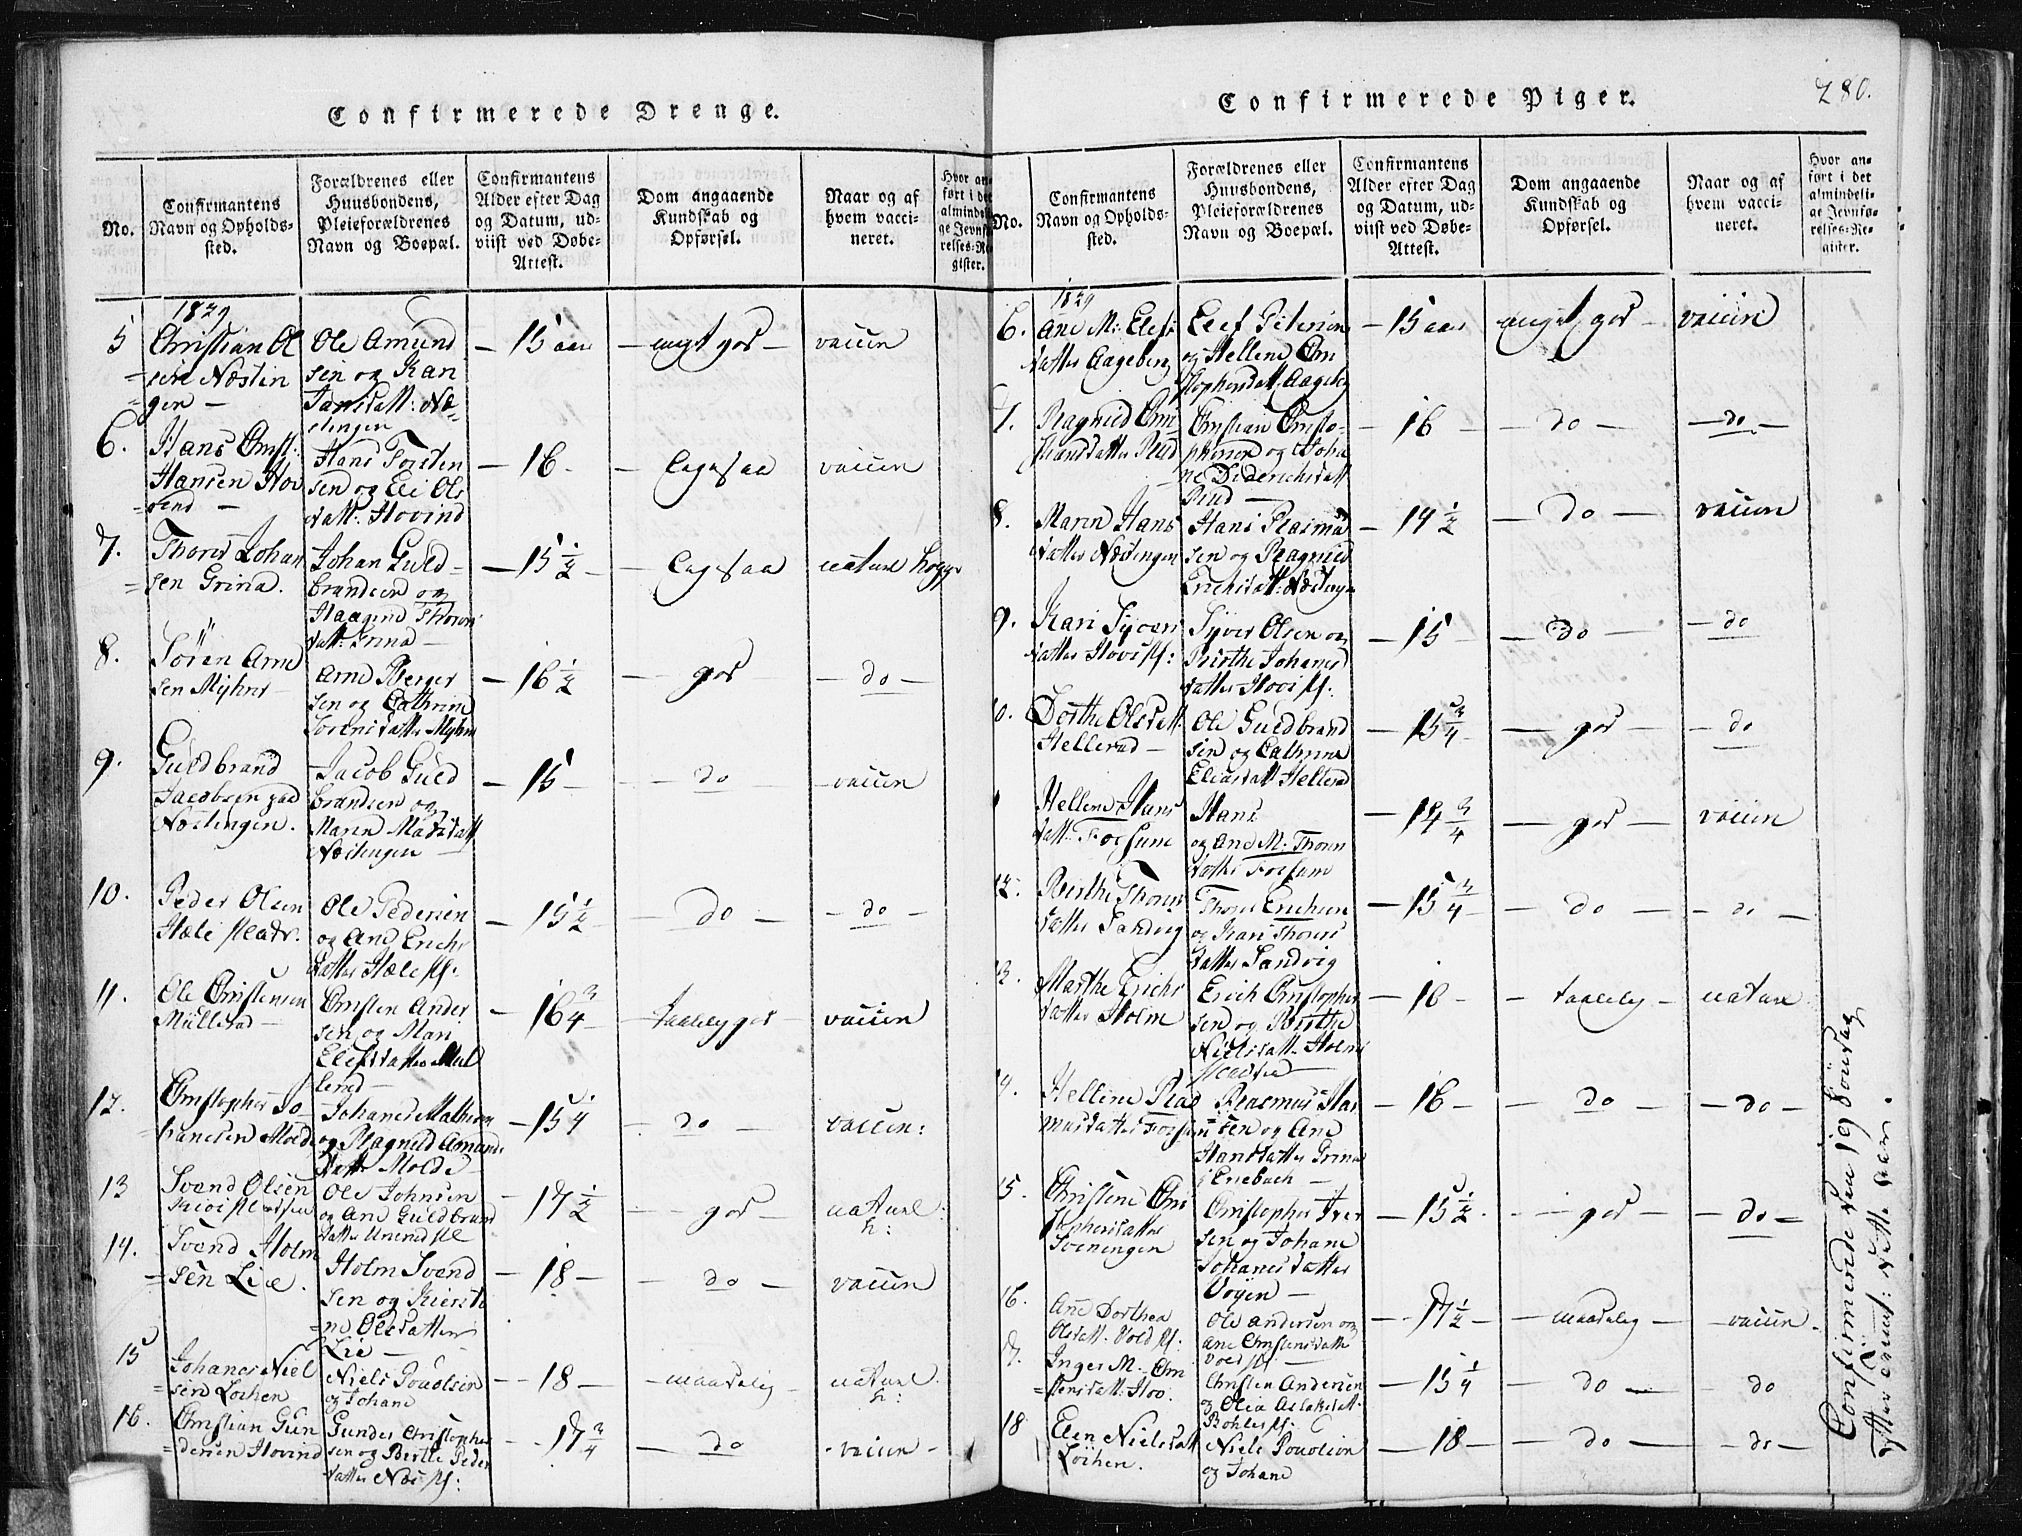 Confirmerede Drenge.
No.
Confirmantens
Navn og Opholds-
sted.
Forældrenes eller
Huusbondens,
Pleieforældrenes
Navn og Boepæl.
Confirmantens
Alder efter Dag
og Datum, ud-
viist ved Døbe-
Attest.
Dom angaaende
Kundskab og
Opførsel.
Naar og af
hvem vacci-
neret.
Hvor an-
ført i det
almindeli-
ge Jevnfø-
relses-Re-
gister.
1829
5 Christian Ol
=sen Næstin
gen —
Ole Amund
sen og Kari
Hansdatt: Næ-
stingen
— 15 aar
— godt —
vaccin
6. Hans Christ:
Hansen Ho
vind —
Hans Torsten
sen og Eli Ols
datt: Hovind
— 16 -
— Ligesaa
vaccin
7. Thorer Johan
=sen Grina.
Johan Guld-
brandsen og
Haagind Thorers
datt: Grina —
— 15 1/2 -
— Ligesaa
nature
8. Søren Arne
sen Myhrer —
Arne Berger
sen og Cathrine
Sørensdatter Myhre
— 16 1/2
— god —
— do —
9. Guldbrand
Jacobsen
Næstingen.
Jacob Guld
brandsen og
Maren Madsdatt
Næstingen —
— 15 -
— do
- vaccin
10. Peder Olsen
Hole
Ole Pedersen
og Ane Erichs
datter Hole
— 15 1/2
— do —
- do -
11. Ole Christensen
Müllerud —
Christen Ander
sen og Mari
Elefsdatter Mül
lerud —
- 16 3/4 -
— taalelig god —
vaccin
12. Christopher Jo
=hannesen Molde
Johannes Mathiesen
og Ragnild Amunds
datt: Molde
— 15 1/4
— do —
vaccin:
13 Svend Olsen
Ole Johnsen
og Ane Guldbrands
datter
- 17 1/2
— god —
nature:
14. Svend Holm
=sen Lie.
Holm Svend
sen og Kiersti
=ne Olesdatter
Lie —
— 18 —
— do —
vaccin
15 Johanes Niel
=sen Løchen
Niels Poulsen
og Johane
— 18 —
— maadelig —
nature
16. Christian Gun
=dersen Hovind
Gunder Christopher
sen og Berthe Peder
datter Næs
- 17 3/4
— do —
- vaccin -
Confirmerede Piger.
280.
No.
Confirmantens
Navn og Opholds-
sted.
Forældrenes eller
Huusbondens,
Pleieforældrenes
Navn og Boepæl.
Confirmantens
Alder efter Dag
og Datum, ud-
viist ved Døbe-
Attest.
Dom angaaende
Kundskab og
Opførsel.
Naar og af
hvem vacci-
neret.
Hvor an-
ført i det
almindeli-
ge Jevnfø-
relses-Re-
gister.
1829
6. Ane M: Elefs
datter Aageberg
Elef Petersen
og Hellene Chri
stophersdatt: Aageberg
— 15 aar
meget god —
vaccin
7. Ragnild Chri
stiansdatter Rud
Christian Christo-
phersen og Joha
ne Diderichsdatt
Rud —
— 16 —
— do —
— do —
8. Maren Hans
datter Næstingen
Hans Rasmu
sen og Ragnild
Erichsdatt: Næstingen
— 14 1/2
— do —
vaccin
9. Kari Syvers
datter
Syver Olsen og
Berthe Johanes
datter
— 15 -
— do —
— do
10. Dorthe Olsdatt
Hellerud —
Ole Guldbrand
sen og Cathrine
Eliasdatt Hellerud
— 15 3/4
— god —
— do
Hellene Hans
datt: Fossum
Hans
og Ane M: Thorers
datter Fossum
— 14 3/4
— god —
vaccin
12. Berthe Thorers
datter Sandvig
Thorer Erichsen
og Kari Thorers
datter Sandvig
— 15 3/4
— do —
— do —
13. Marthe Erichs
datter Holm
Erich Christopher
sen og Berthe
Nielsdatt: Holm
— 16 -
— taalelig —
nature
14. Hellene Ras
musdatter Fossum
Rasmus Han
sen og Ane
Hansdatter Grina
— 16 —
— do —
— do —
15. Christine Chri
stophersdatter
Sveningen
Christopher Iver
sen og Johane
Johanesdatter
Vøyen —
— 15 1/2 -
— god —
— do —
16. Ane Dorthea
Olsdatt: Vold
Ole Andersen og
Ane Christensdatt
Vold
— 17 1/2
— maadelig —
- vaccin
7. Inger M. Chri
=stensdatt: Hov.
Christen Andersen
og Olia Aslaksdatt
— 15 1/4
— do —
— do
18 Elen Nielsdatt
Løchen.
Niels Poulsen
og Johane
— 18 —
— do —
— do —
Confirmerede den 19 Søndag
efter